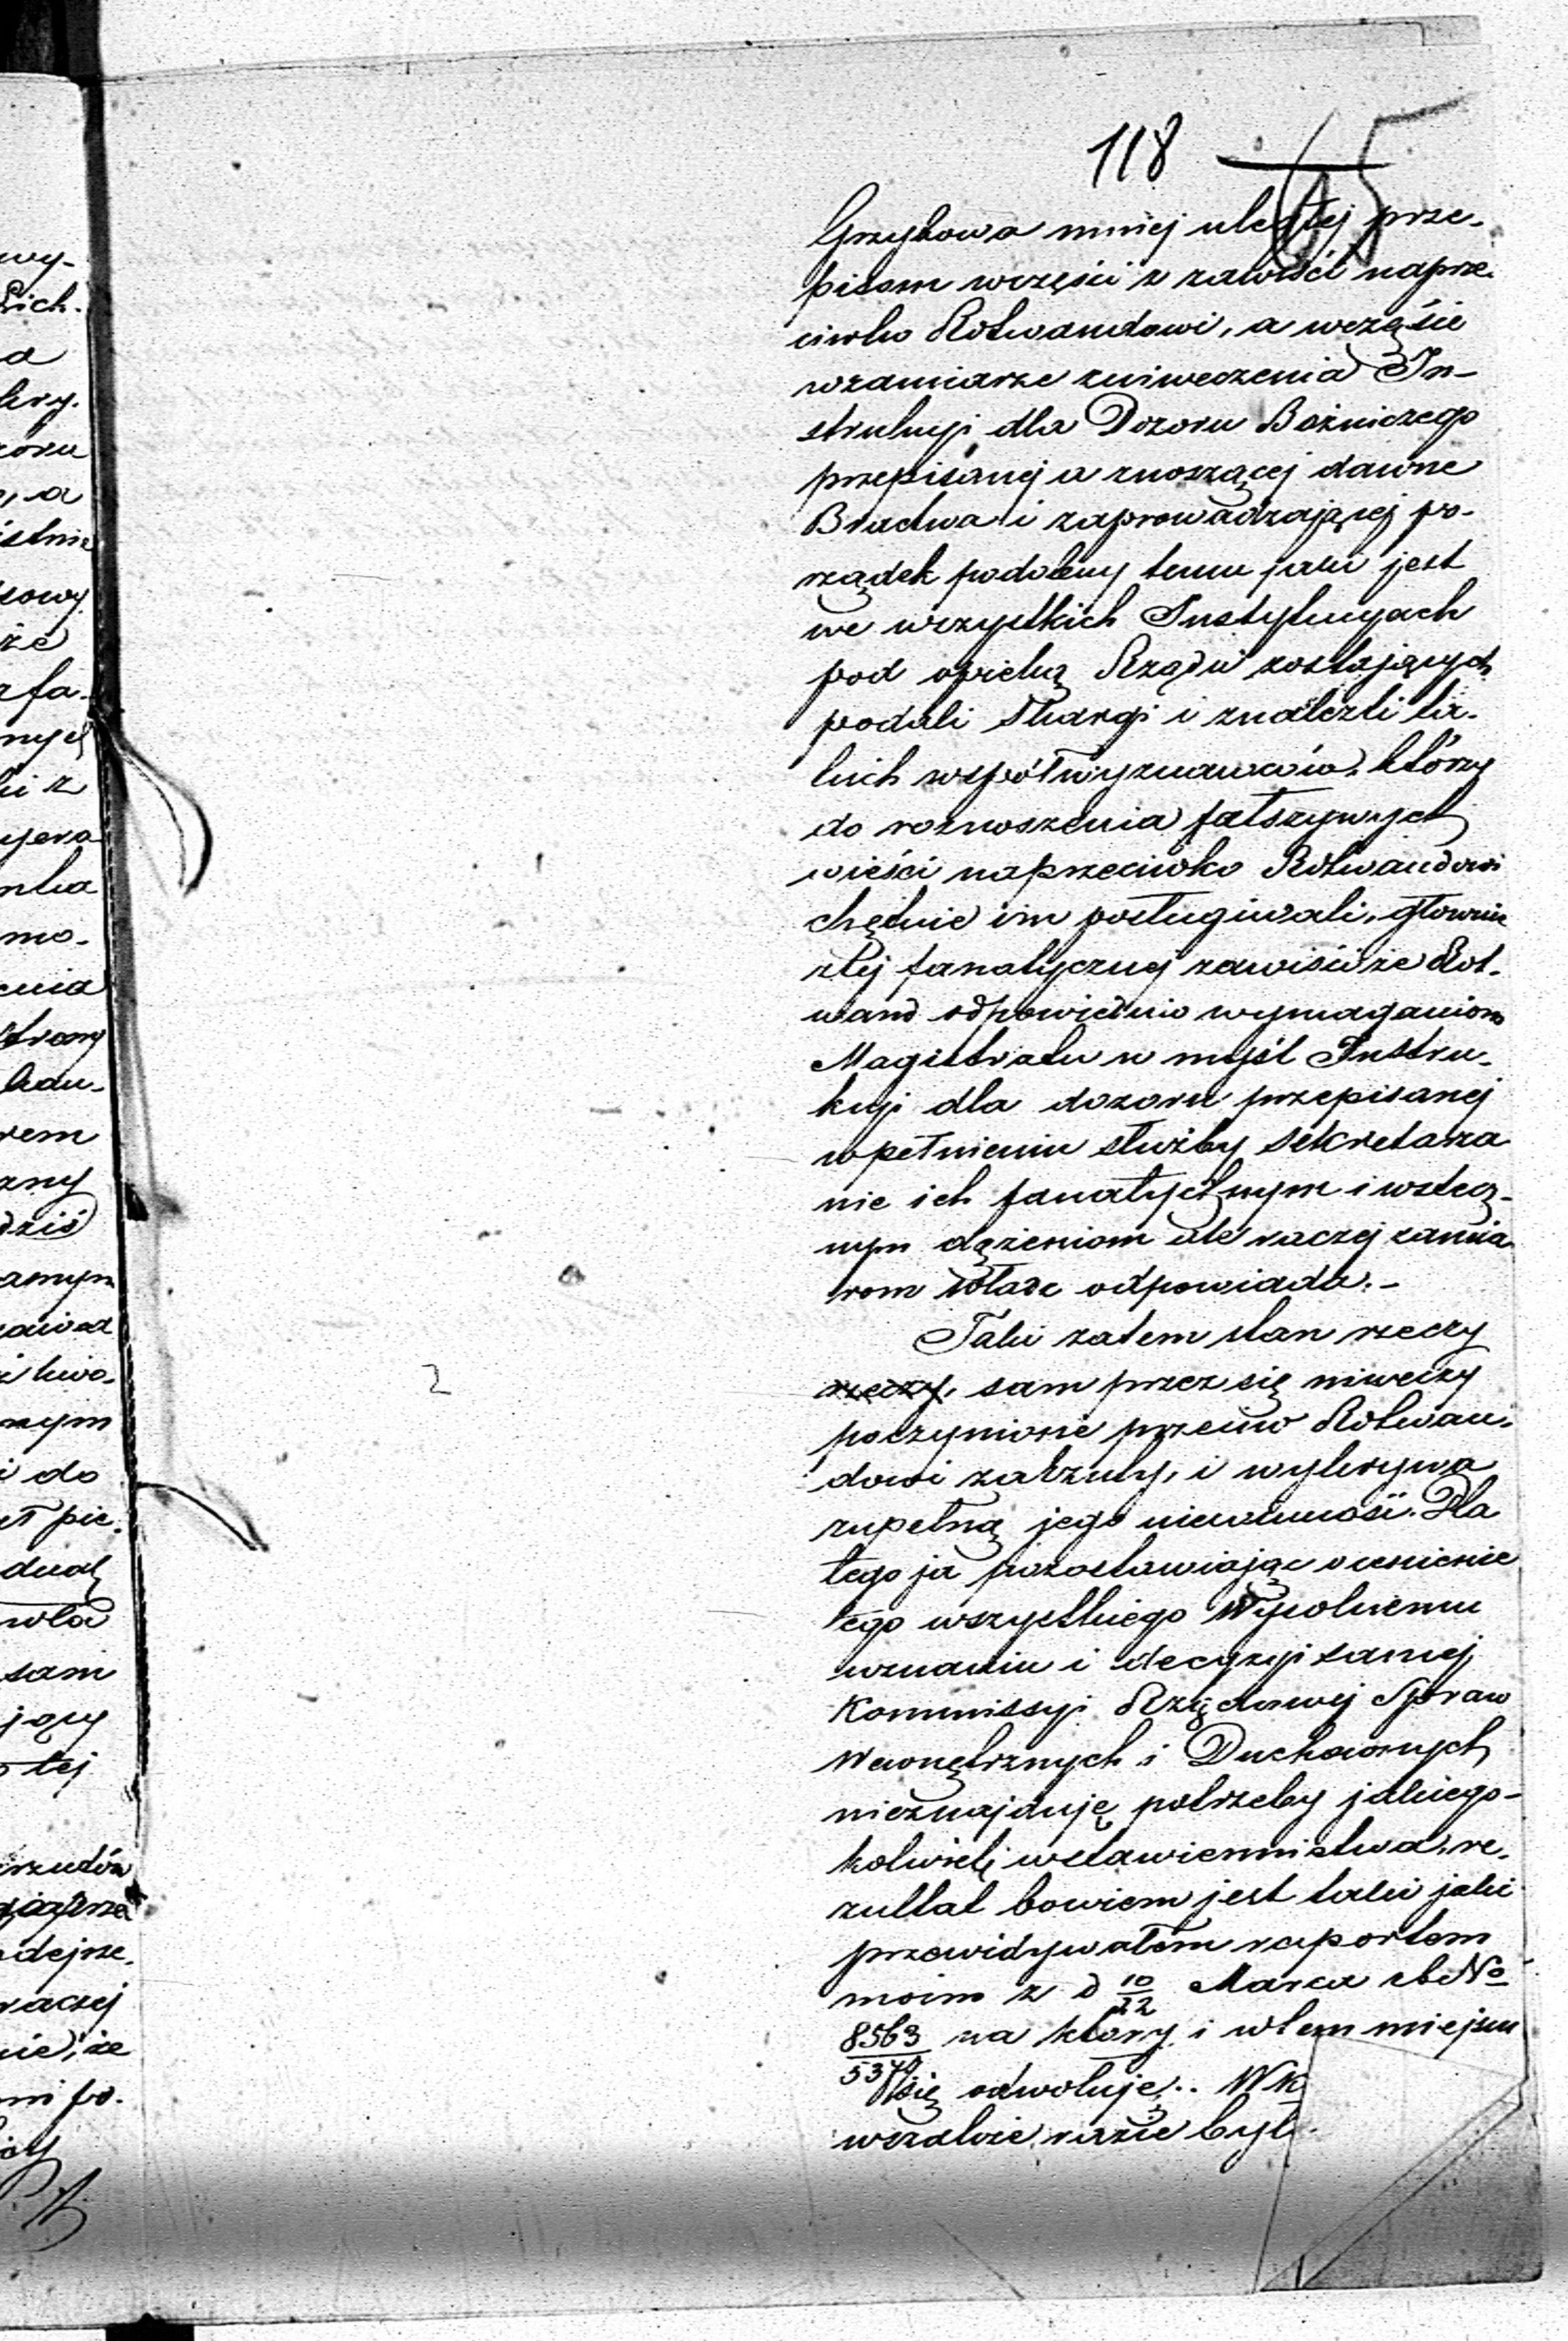 118 65
Grzybowa mniej uległej prze-
pisom wczęści z zawiści naprze-
ciwko Rotwandowi, a wczęście
wzamiarze zniweczenia In-
strukcyi dla Dozoru Bożniczego
przepisanej a znoszącej dawne
Bractwa i zaprowadzającej po-
rządek podobny temu jaki jest
we wszystkich Instytucyach
pod opieką Rządu zostających
podali skargi i znaleźli ta-
kich współwyznawców, którzy
do roznoszenia fałszywych
wieści naprzeciwko Rotwandowi
chętnie im posługiwali, głownie
ztej fanatycznej zawiści że Rot-
wand odpowiednio wymaganiom
Magistratu w myśl Instru-
kcyi dla dozoru przepisanej
wpełnieniu służby sekretarza
nie ich fanatycznym i wstecz-
nym dążeniom ale raczej zamia-
rom Władz odpowiada.-
Taki zatem stan rzeczy
rzeczy, sam przez się niweczy
poczynione przeciw Rotwan-
dowi zarzuty, i wykrywa
zupełną jego niewinność. Dla
tego ja pozostawiając ocenienie
tego wszystkiego Wysokiemu
uznaniu i decyzyi samej
Kommissyi Rządowej Spraw
Wewnętrznych i Duchownych
nieznajduję potrzeby jakiego-
kolwiek wstawiennictwa, re-
zultat bowiem jest taki jaki
przewidywałem raportem
moim z d 10/22 Marca rb No
8563/5370 na który i wtem miejscu
się odwołuję.. W K
wkażdzie razie był
wy-
a
kry.
zoru
, a
istnie
sowy
że
fa-
nych
ki z
mo-
enia
strony
kan-
rem
zny
dziś
amym
nym
i do
sam
jący
tej
rzutów
raczej
nie, że
mi po-